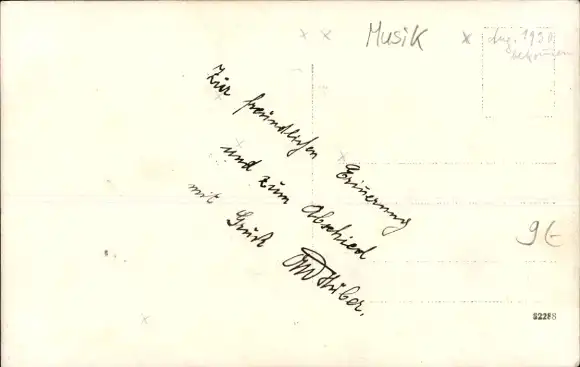 Musik
Aug. 1930
bekommen
Zur freundlichen Erinnerung
und zum Abschied
mit Gruß
Huber.
9€
52288